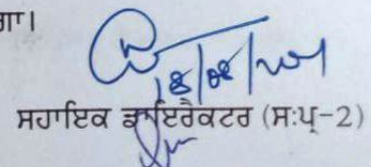 ਗਾ।
ਸਹਾਇਕ ਡਾਇਰੈਕਟਰ (ਸ:ਪ੍ਰ-2)